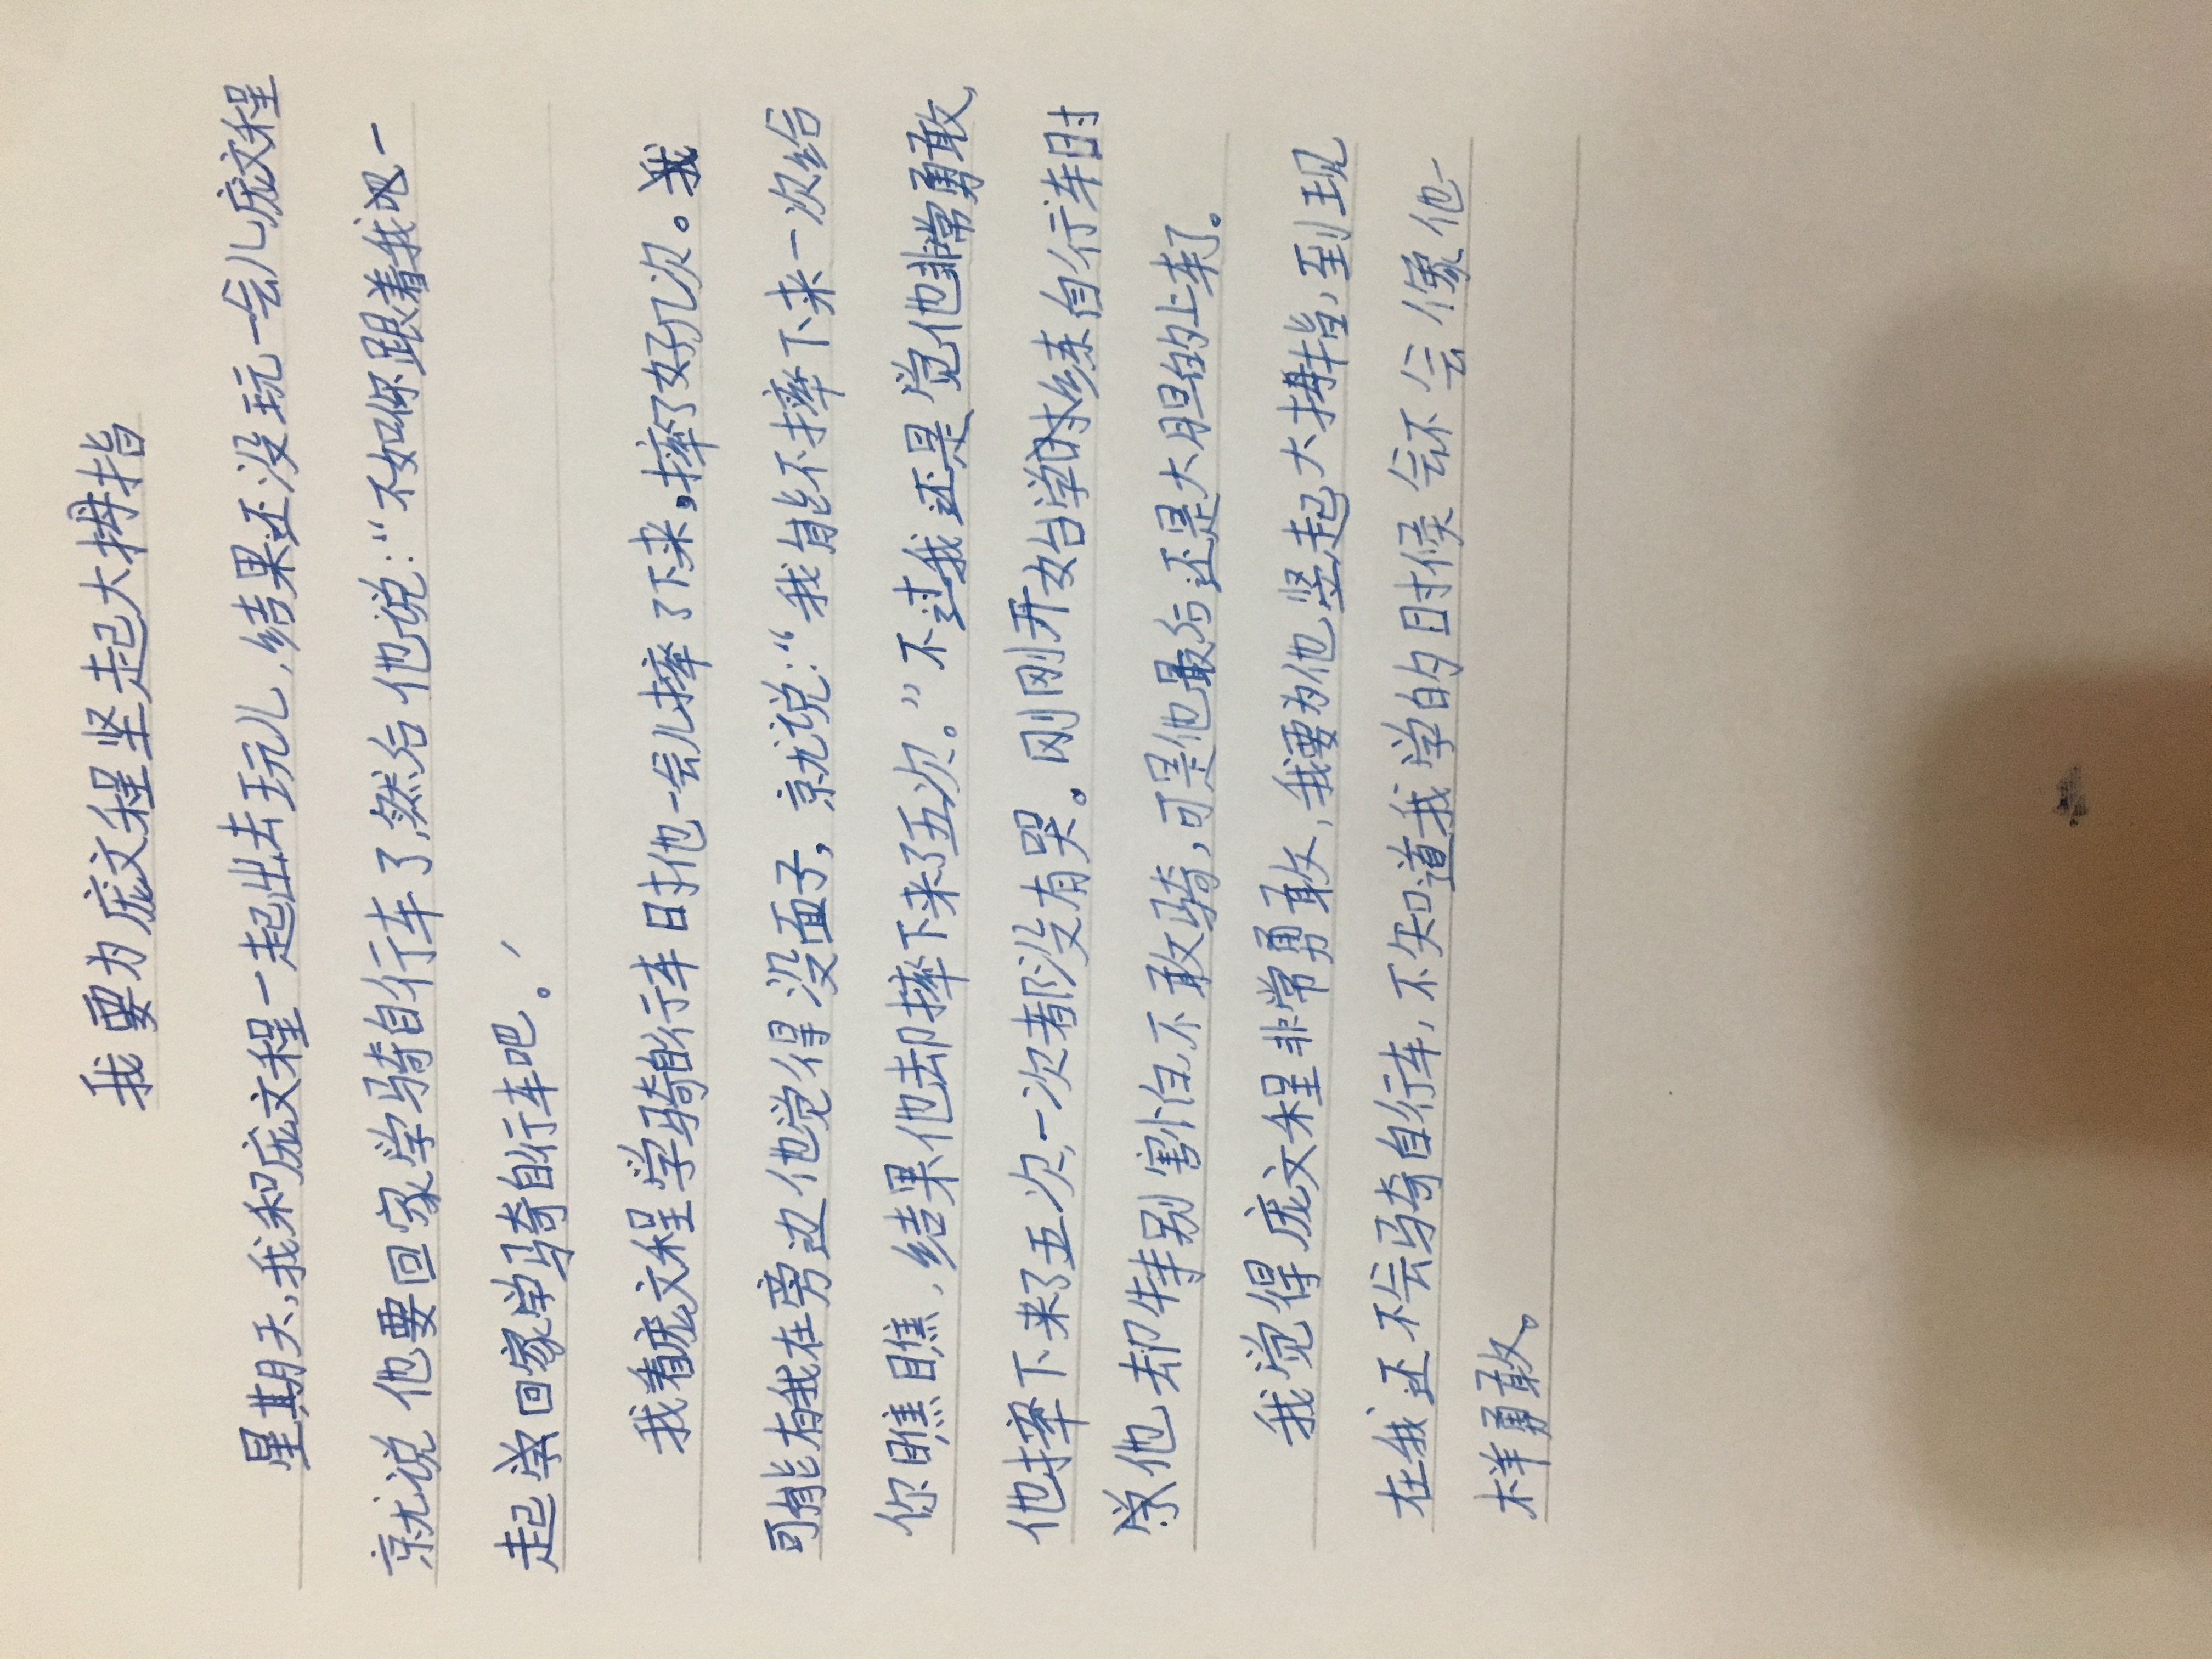 我要为庞文程坚起大拇指
星期天,我和庞文程一起出去玩儿,结果还没玩一会儿庞文程
就说他要回家学骑自行车了,然后他说:“不如你跟着我一
起学回家学骑自行车吧。
我看庞文程学骑自行车时他一会儿摔了下来,摔了好几次。
可能有我在旁边他觉得没面子,就说:“我能不摔下来一次给
你瞧瞧,结果他却摔下来了五次。”不过我还是觉他非常勇敢,
他摔下来了五次,一次都没有哭。刚刚开始学时练自行车时
他却特别害怕不敢骑,可是他最后还是大胆的上车了。
我觉得庞文程非常勇敢,我要为他竖起大拇指,到现
在我还不会骑自行车,不知道我学的时候会不会像他一
样勇敢。